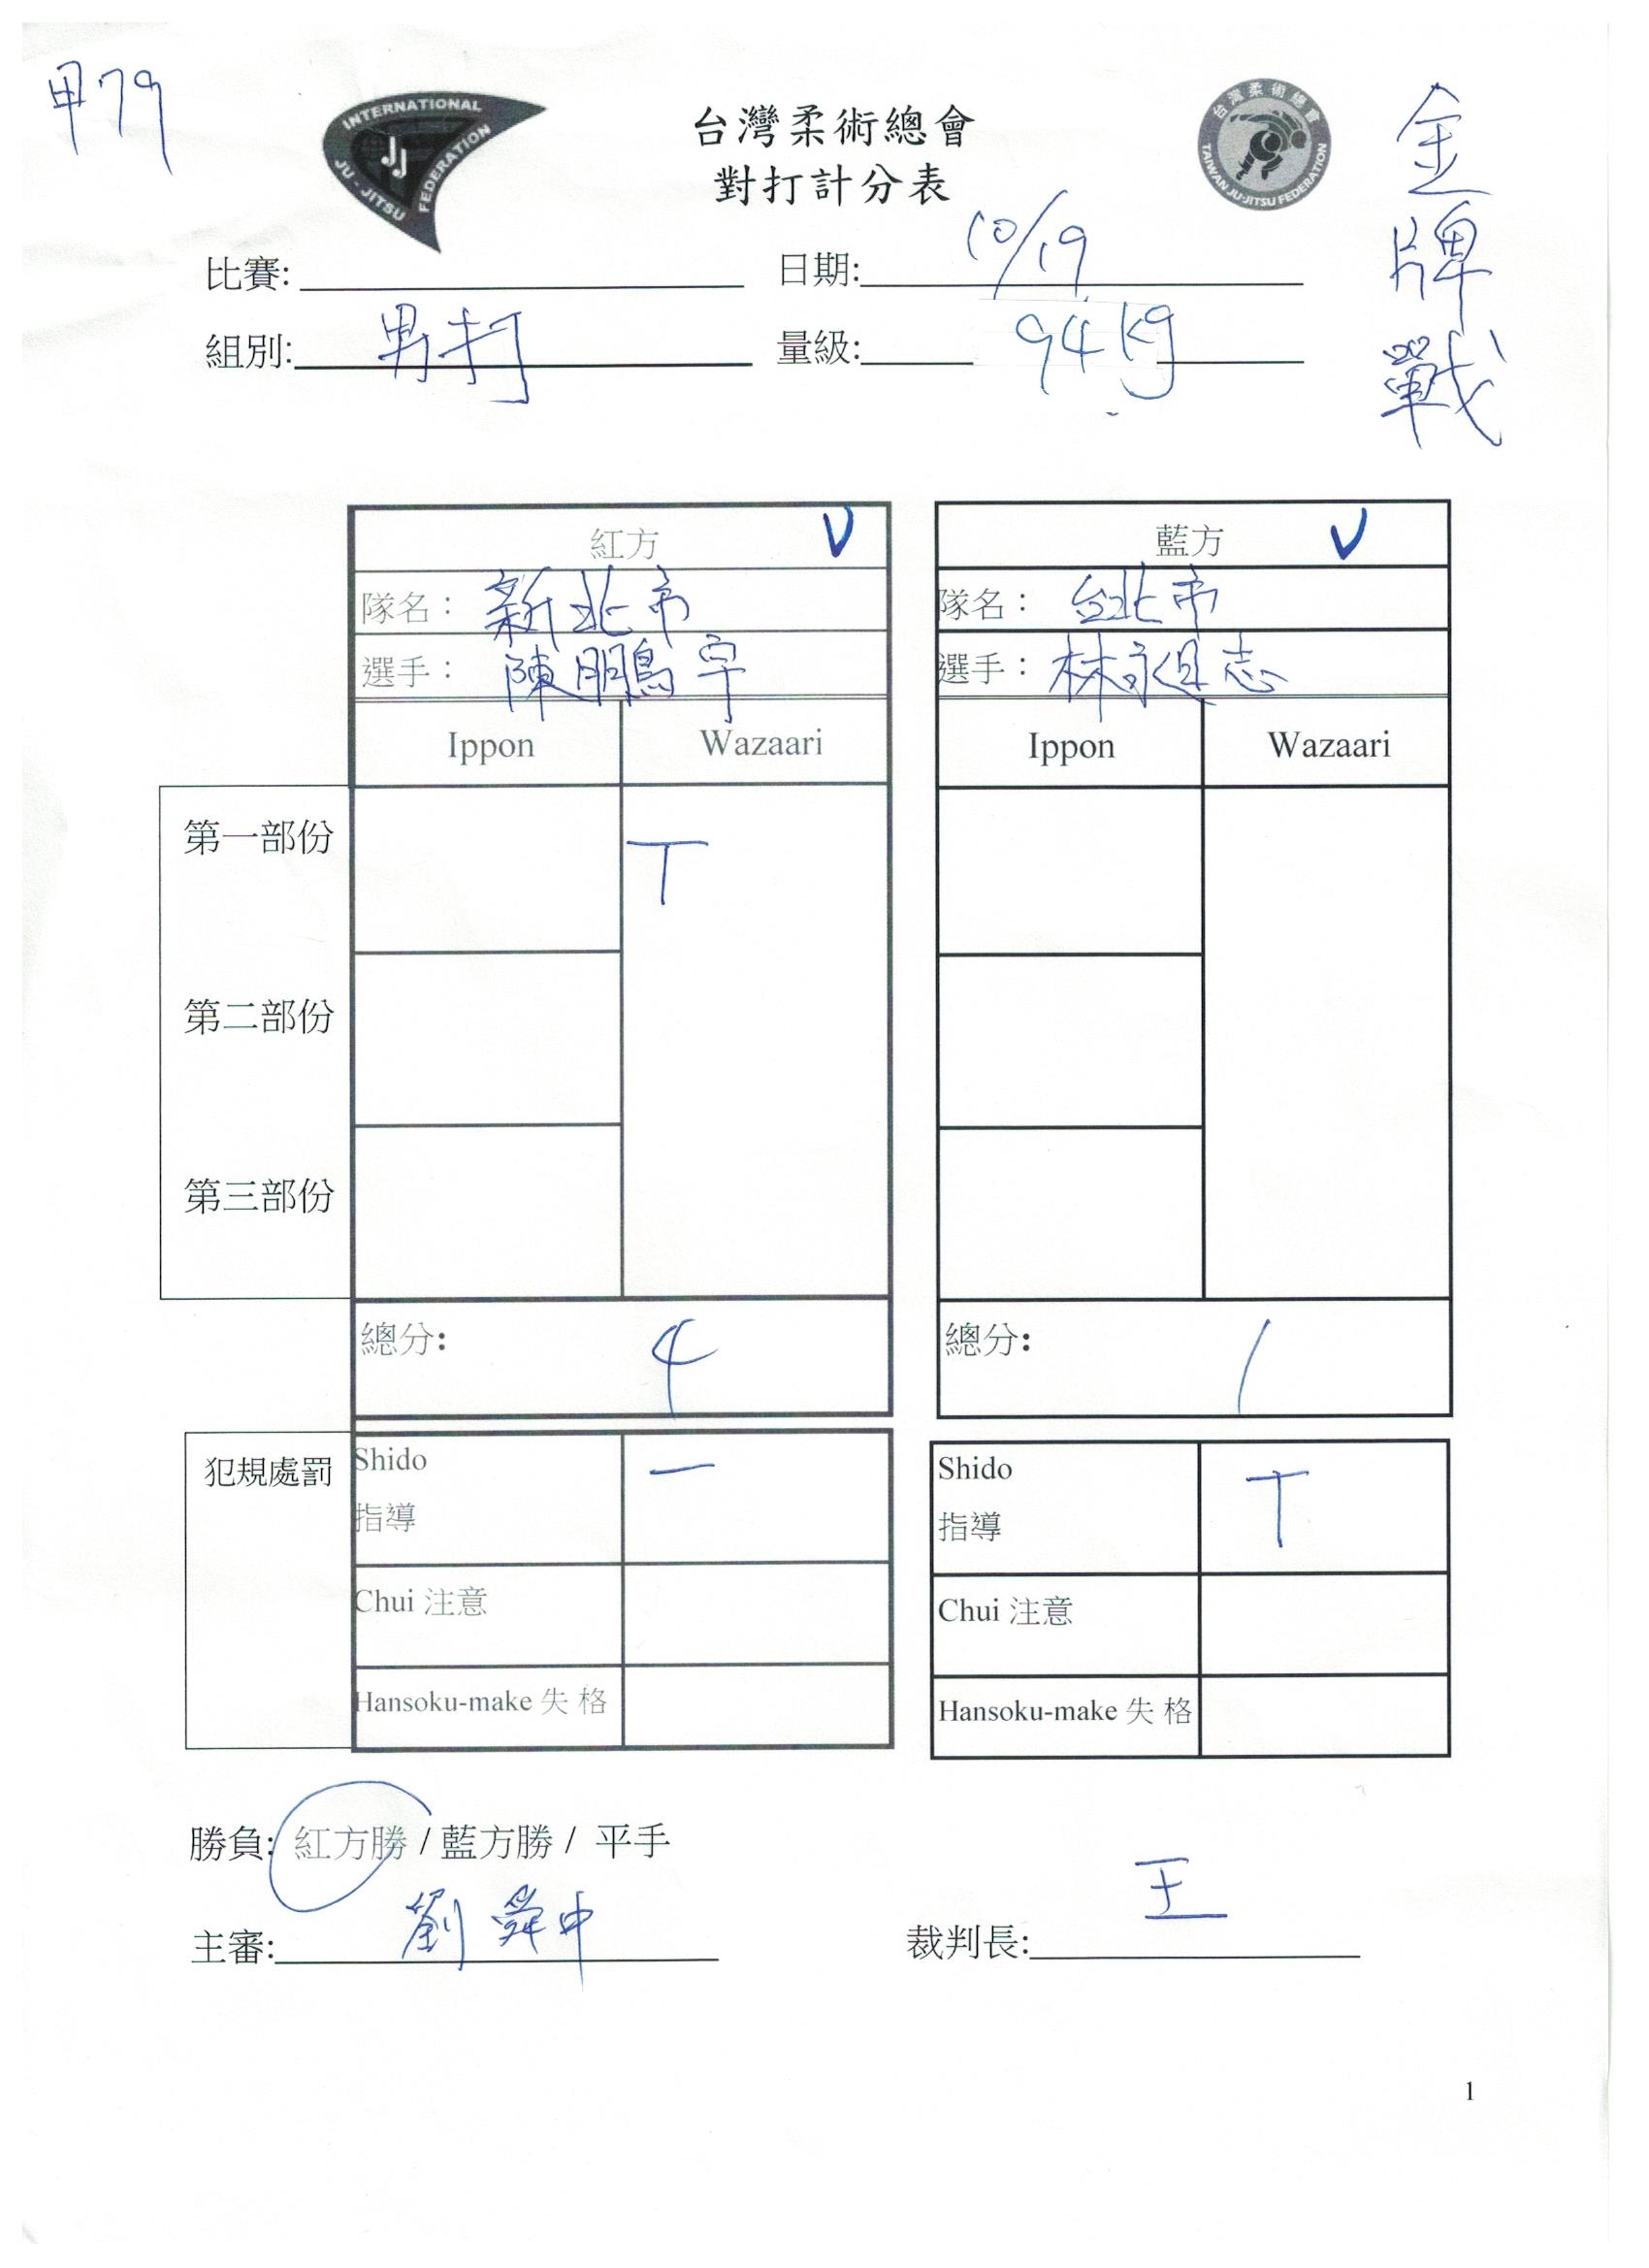 甲79
INTERNATIONAL JU-JITSU FEDERATION
JJ
台灣柔術總會
TAIWAN JU-JITSU FEDERATION
金牌戰
台灣柔術總會
對打計分表
比賽: 日期: 10/19
組別: 男打 量級: 94 kg
紅方 V 藍方 V
隊名： 新北市 隊名： 台北市
選手： 陳鵬宇 選手： 林祖志
Ippon Wazaari Ippon Wazaari
第一部份 T
第二部份
第三部份
總分: 4 總分: 1
犯規處罰 Shido 一 Shido T
指導 指導
Chui 注意 Chui 注意
Hansoku-make 失 格 Hansoku-make 失 格
勝負: 紅方勝 / 藍方勝 / 平手
主審: 劉舜中 裁判長: 王
1